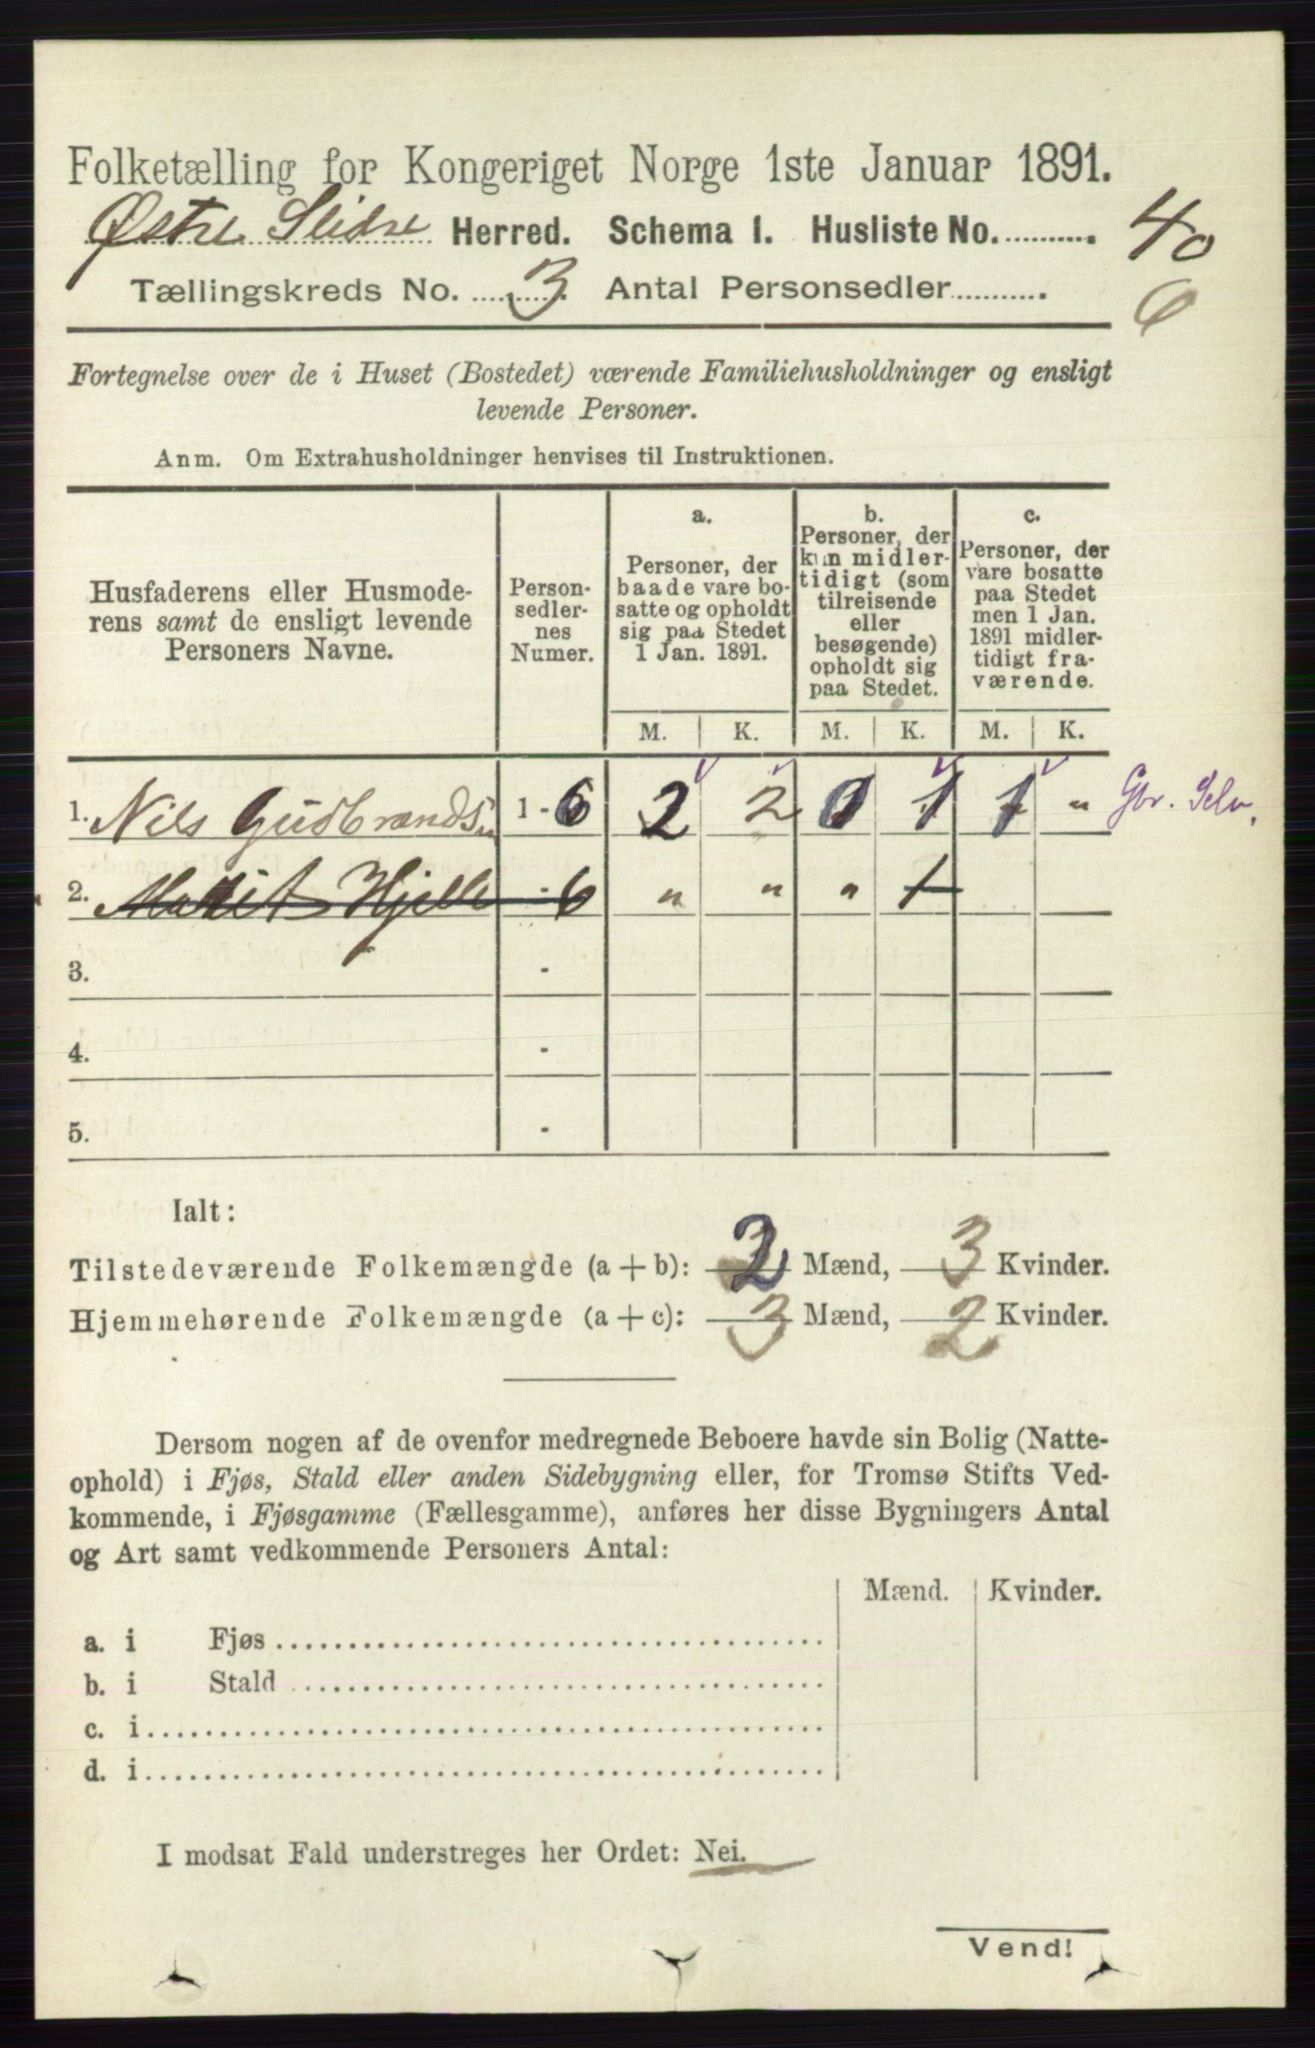 Folketælling for Kongeriget Norge 1ste Januar 1891.
Østre Slidre Herred. Schema I. Husliste No. .......... 40
Tællingskreds No. 3 Antal Personsedler .......... 6
Fortegnelse over de i Huset (Bostedet) værende Familiehusholdninger og ensligt
levende Personer.
Anm. Om Extrahusholdninger henvises til Instruktionen.
Husfaderens eller Husmode-
rens samt de ensligt levende
Personers Navne.
Person-
sedler-
nes
Numer.
a.
Personer, der
baade vare bo-
satte og opholdt
sig paa Stedet
1 Jan. 1891.
b.
Personer, der
kun midler-
tidigt (som
tilreisende
eller
besøgende)
opholdt sig
paa Stedet.
c.
Personer, der
vare bosatte
paa Stedet
men 1 Jan.
1891 midler-
tidigt fra-
værende.
M. K. M. K. M. K.
1. Nils Gudbrandsen 1 - 6 2 2 0 1 1 " Gbr. Selv.
2. Marit Hjelle - 6 " " " 1
3. -
4. -
5. -
Ialt:
Tilstedeværende Folkemængde (a + b): 2 Mænd, 3 Kvinder.
Hjemmehørende Folkemængde (a + c): 3 Mænd, 2 Kvinder.
Dersom nogen af de ovenfor medregnede Beboere havde sin Bolig (Natte-
ophold) i Fjøs, Stald eller anden Sidebygning eller, for Tromsø Stifts Ved-
kommende, i Fjøsgamme (Fællesgamme), anføres her disse Bygningers Antal
og Art samt vedkommende Personers Antal:
Mænd. Kvinder.
a. i Fjøs
b. i Stald
c. i
d. i
I modsat Fald understreges her Ordet: Nei.
Vend!